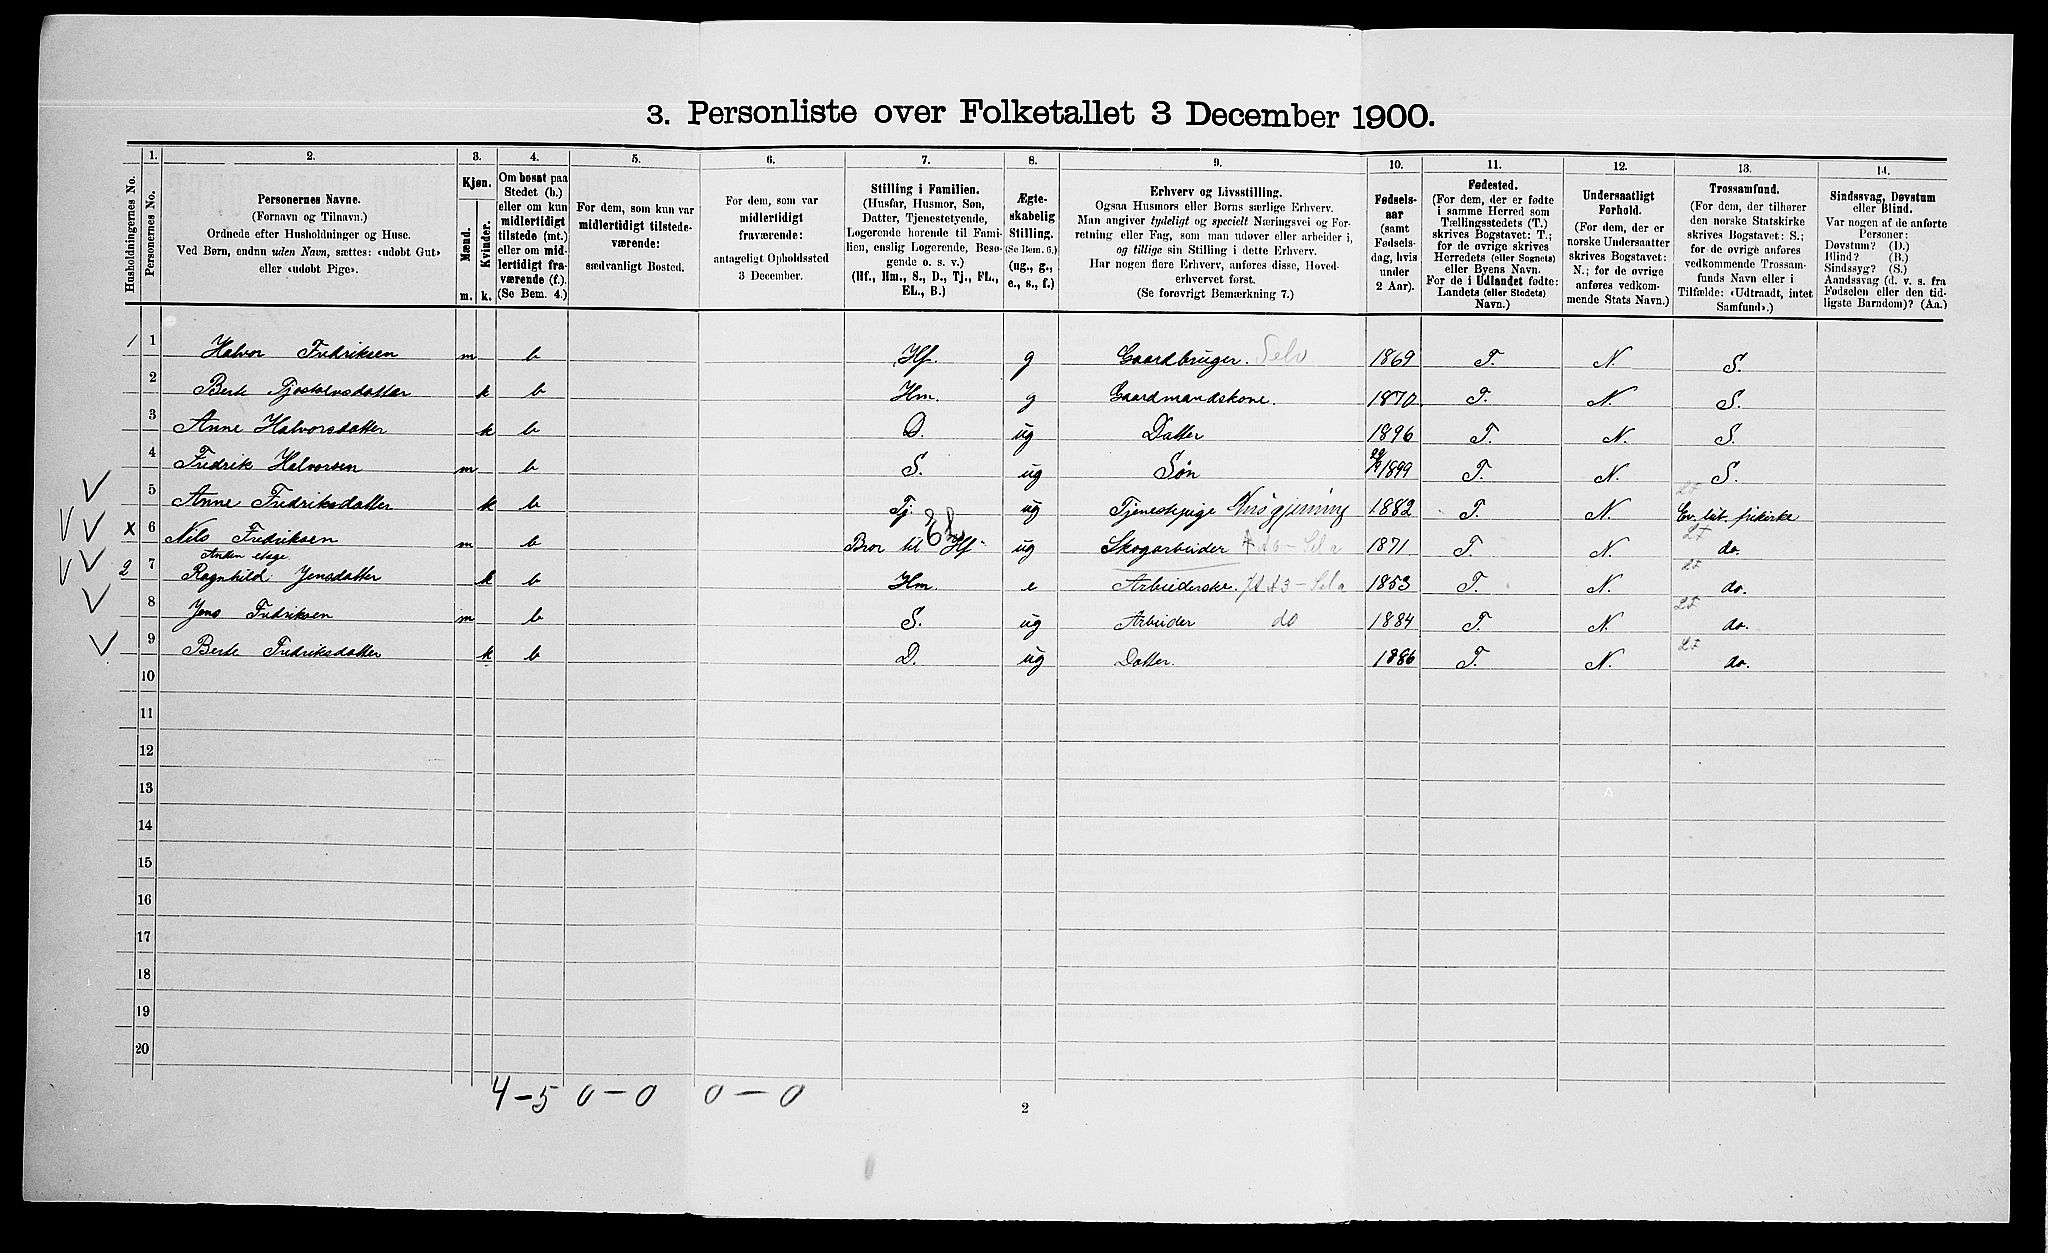 3. Personliste over Folketallet 3 December 1900.
Husholdningernes No.
1.
Personernes No.
2.
Personernes Navne.
(Fornavn og Tilnavn.)
Ordnede efter Husholdninger og Huse.
Ved Børn, endnu uden Navn, sættes: «udobt Gut»
eller «udobt Pige».
3.
Kjøn.
Mænd.
Kvinder.
m. k.
4.
Om bosat paa
Stedet (b.)
eller om kun
midlertidigt
tilstede (mt.)
eller om mid-
lertidigt fra-
værende (f.).
(Se Bem. 4.)
5.
For dem, som kun var
midlertidigt tilstede-
værende:
sædvanligt Bosted.
6.
For dem, som var
midlertidigt
fraværende:
antageligt Opholdssted
3 December.
7.
Stilling i Familien.
(Husfar, Husmor, Søn,
Datter, Tjenestetyende,
Logerende hørende til Fami-
lien, enslig Logerende, Besø-
gende o. s. v.)
(Hf., Hm., S., D., Tj., FL.,
EL., B.)
8.
Ægte-
skabelig
Stilling.
(Se Bem. 6.)
(ug., g.,
e., s., f.)
9.
Erhverv og Livsstilling.
Ogsaa Husmors eller Børns særlige Erhverv.
Man angiver tydeligt og specielt Næringsvei og For-
retning eller Fag, som man udover eller arbeider i,
og tillige sin Stilling i dette Erhverv.
Har nogen flere Erhverv, anføres disse, Hoved-
erhvervet først.
(Se forøvrigt Bemærkning 7.)
10.
Fødsels-
aar
(samt
Fødsels-
dag, hvis
under
2 Aar).
11.
Fødested.
(For dem, der er fødte
i samme Herred som
Tællingsstedets (T.)
skrives Bogstavet: T.;
for de øvrige skrives
Herredets (eller Sognets)
eller Byens Navn.
For de i Udlandet fødte:
Landets (eller Stedets)
Navn.)
12.
Undersaatligt
Forhold.
(For dem, der er
norske Undersaatter
skrives Bogstavet:
N.; for de øvrige
anføres vedkom-
mende Stats Navn.)
13.
Trossamfund.
(For dem, der tilhører
den norske Statskirke
skrives Bogstavet: S.;
for de øvrige anføres
vedkommende Trossam-
funds Navn eller i
Tilfælde: «Udtraadt, intet
Samfund».)
14.
Sindssvag, Døvstum
eller Blind.
Var nogen af de anførte
Personer:
Døvstum? (D.)
Blind? (B.)
Sindssyg? (S.)
Aandssvag (d. v. s. fra
Fødselen eller den tid-
ligste Barndom)? (Aa.)
/ 1 Halvor Fredriksen m b Hf. g Gaardbruger. Selv 1869 T. N. S.
2 Berte Tjostolvsdatter k b Hm. g Gaardmandskone. 1870. T. N. S.
3 Anne Halvorsdatter k b D. ug Datter 1896 T. N. S.
4 Fredrik Halvorsen m b S. ug Søn 1899 T. N. S.
5 Anne Fredriksdatter k b Tj. ug Tjenestpige Husgjerning 1882 T. N. Ev. lut. frikirke
x 6 Nels Fredriksen m b Bror til Hf. El. ug Skogarbeider 1871 T. N. do.
Anden etage.
2 7 Ragnhild Jensdatter k b Hm. e Arbeiderske. 1853 T. N. do.
8 Jens Fredriksen m b S. ug Arbeider do 1884 T. N. do.
9 Berte Fredriksdatter k b D. ug Datter. 1886 T. N. do.
10
11
12
13
14
15
16
17
18
19
20
4 - 5 0 - 0 0 - 0
2